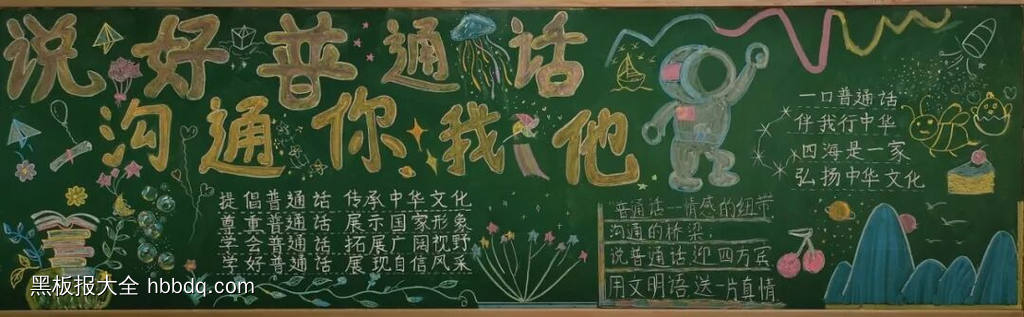 说好普通话
沟通你我他
提倡普通话 传承中华文化
尊重普通话 展示国家形象
学会普通话 拓展广阔视野
学好普通话 展现自信风采
普通话 情感的纽带
沟通的桥梁;
说普通话迎四方宾
用文明语送一片真情
一口普通话
伴我行中华
四海是一家
弘扬中华文化
黑板报大全 hbbdq.com